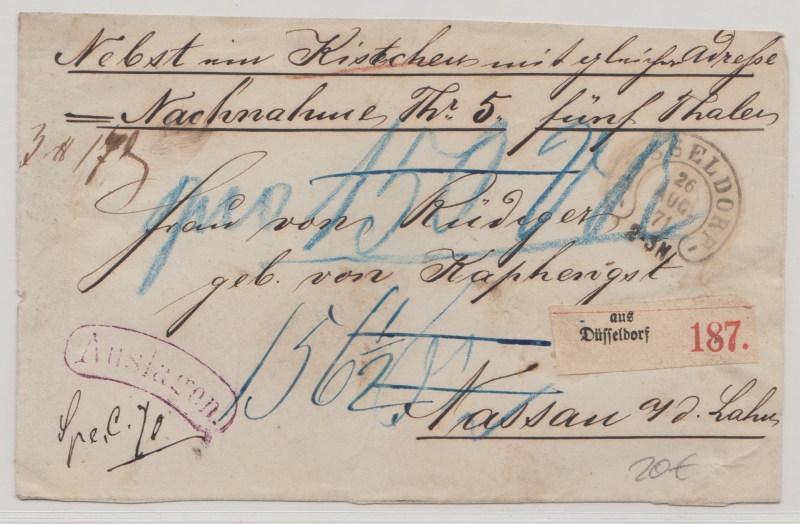 Nebst ein Kistchen mit gleicher Adresse
= Nachnahme Thr. 5. fünf Thaler
3 # 17
DÜSSELDORF
26
AUG
71
2-3N
Frau von Rüdiger
geb. von Kaphengst
156 1/2
aus
Düsseldorf
187.
Auslagen.
Nassau a/d. Lahn
Spec. 70
20€